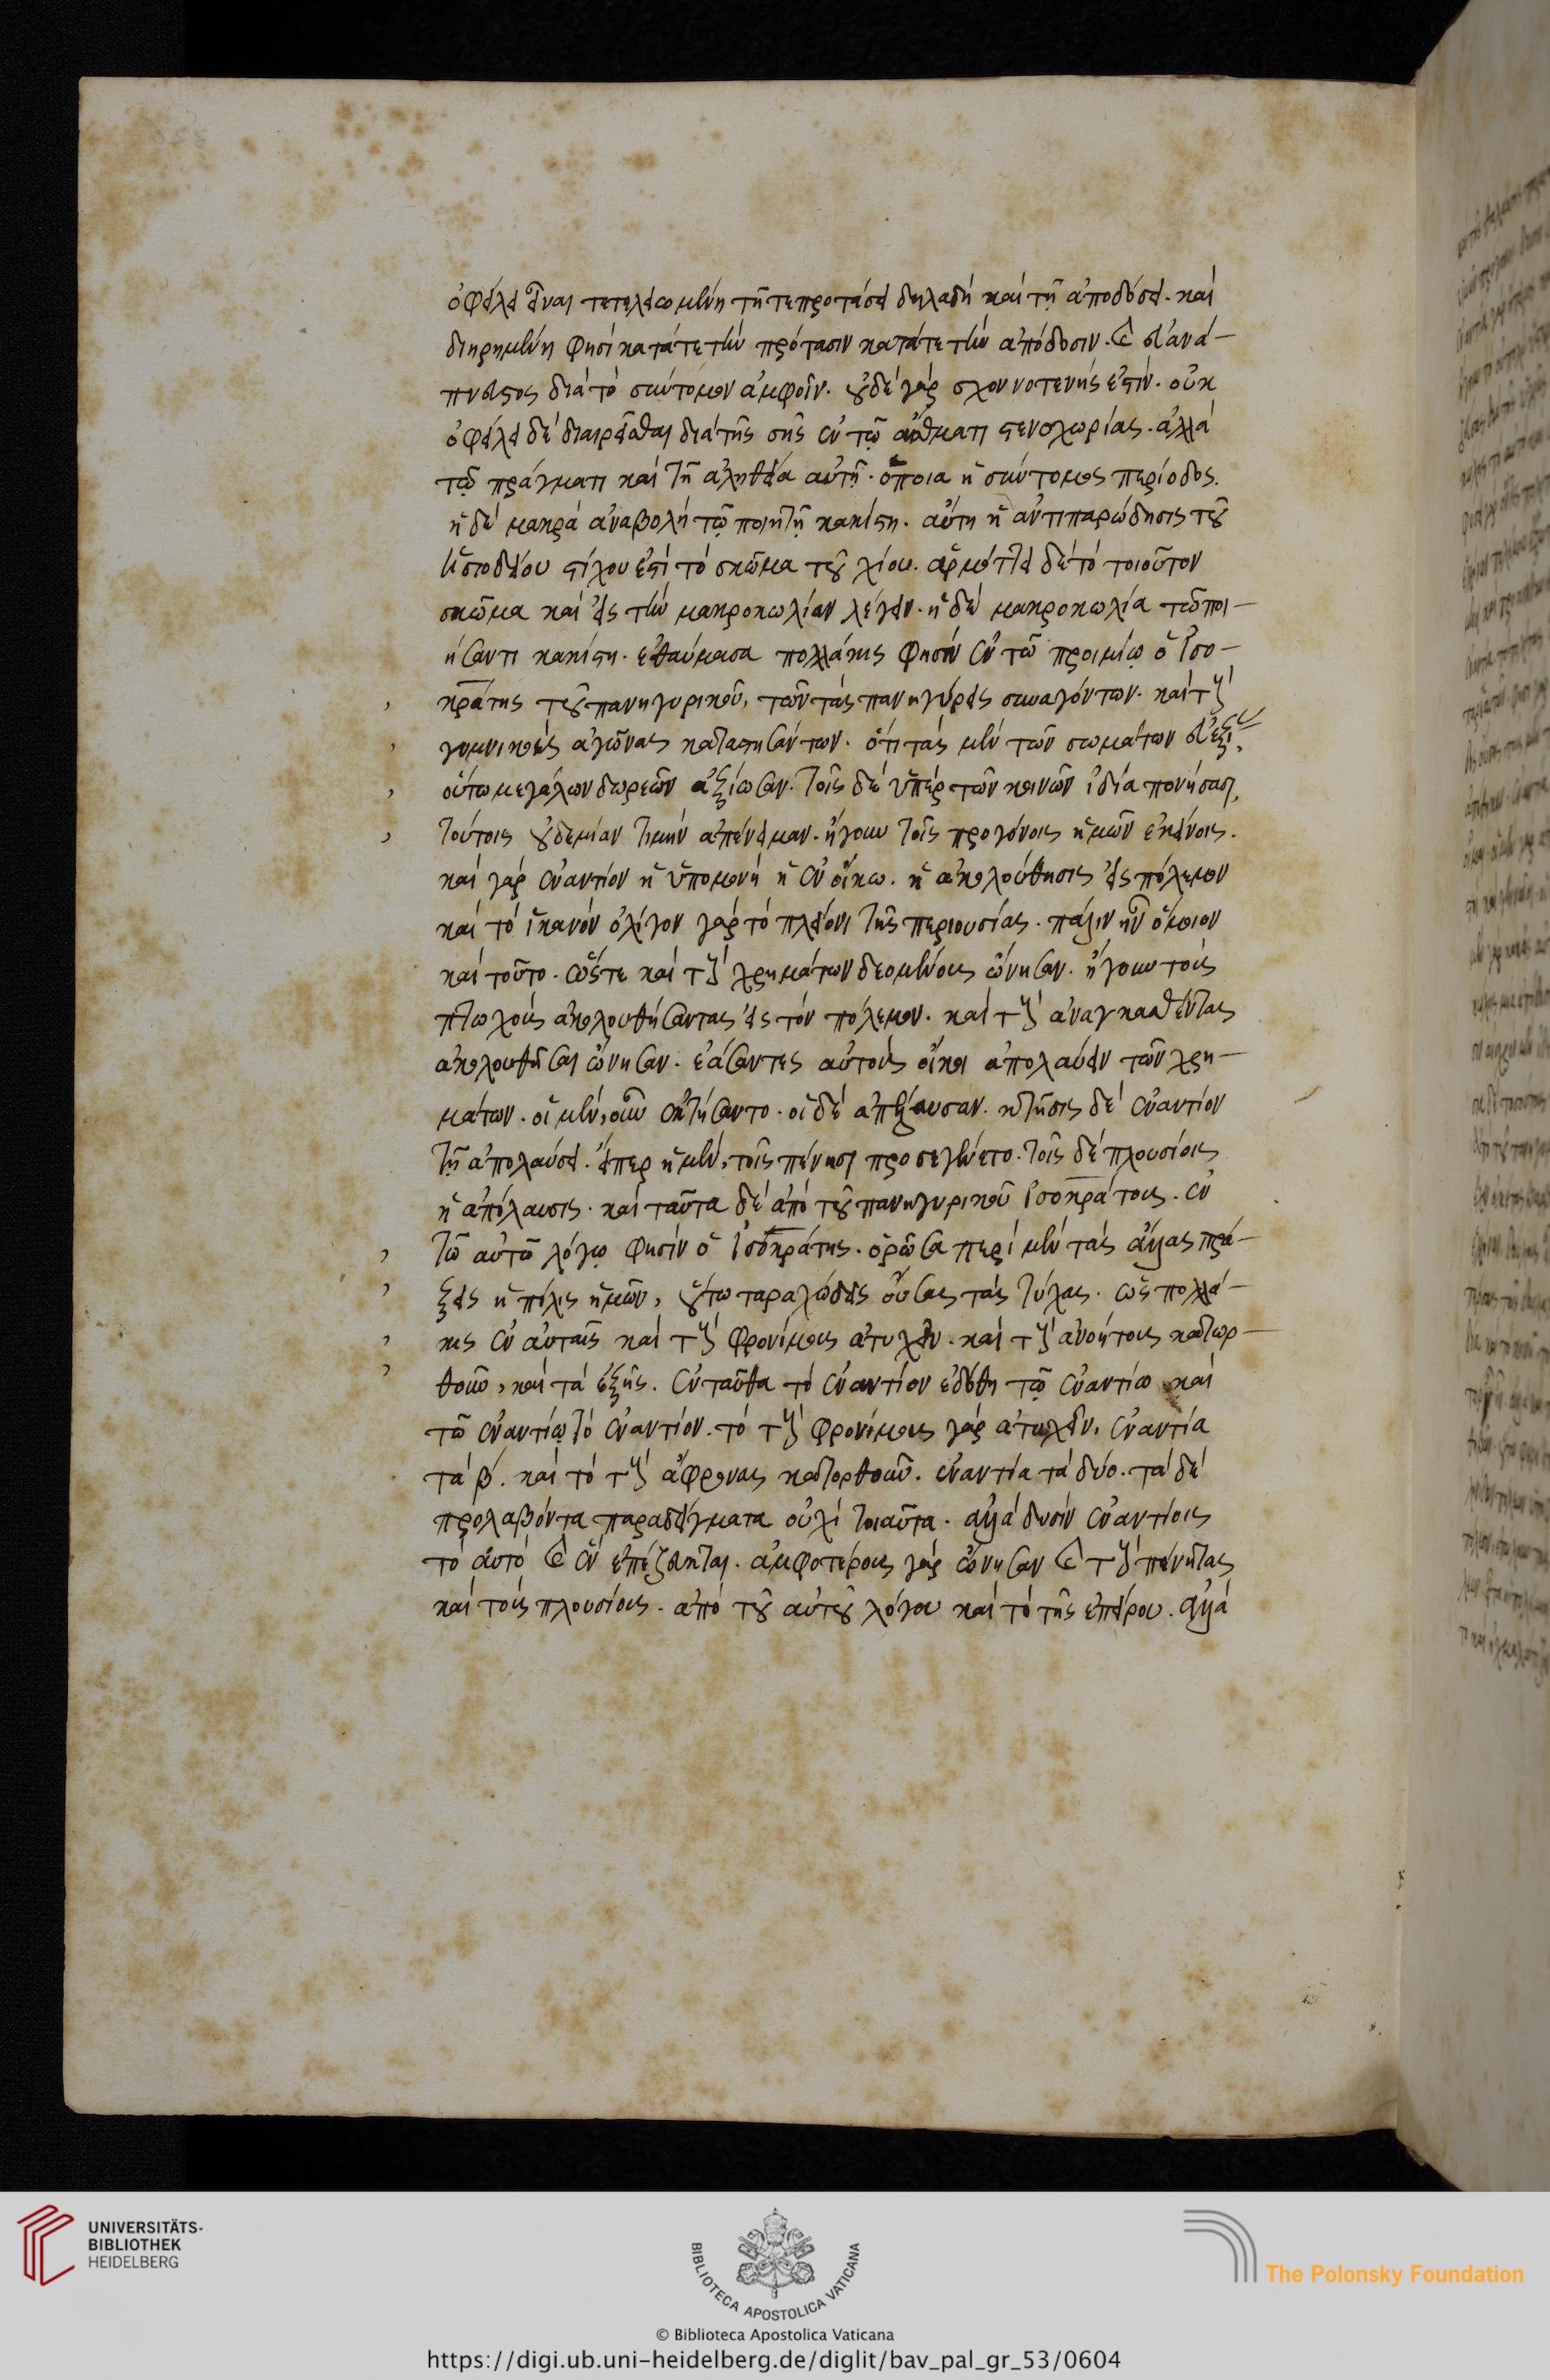 ὀφείλει εἶναι τετελειωμένη τῆ τε προτάσει δηλαδὴ καὶ τῇ ἀποδόσει. καὶ
διηρημένη φησὶ κατά τε τὴν πρότασιν κατά τε τὴν ἀπόδοσιν. καὶ εὐανά-
πνευστος διὰ τὸ σύντομον ἀμφοῖν. οὐδὲ γὰρ σχοινοτενής ἐστιν. οὐκ
ὀφείλει δὲ διαιρεῖσθαι διὰ τῆς σῆς ἐν τῷ ἄσθματι στενοχωρίας. ἀλλὰ
τῷ πράγματι καὶ τῆ ἀληθεία αὐτῆ. ὁποία ἡ σύντομος περίοδος.
ἡ δὲ μακρὰ ἀναβολὴ τῷ ποιητῇ κακίστη. αὕτη ἡ ἀντιπαρώδησις τοῦ
ἡσιοδείου στίχου ἐπὶ τὸ σκῶμμα τοῦ χίου. ἁρμόττει δὲ τὸ τοιοῦτον
σκῶμμα καὶ εἰς τὴν μακροκωλίαν λέγειν. ἡ δὲ μακροκωλία τῶ ποι-
ήσαντι κακίστη. ἐθαύμασα πολλάκις φησὶν ἐν τῶ προιμίῳ ὁ ἰσο-
κράτης τοῦ πανηγυρικοῦ, τῶν τὰς πανηγύρεις συναγόντων. καὶ τοὺς
γυμνικοὺς ἀγῶνας καταστησάντων. ὅτι τὰς μὲν τῶν σωμάτων εὐεξίας
οὕτω μεγάλων δωρεῶν ἀξίωσαν. τοῖς δὲ ὑπὲρ τῶν κοινῶν ἰδία πονήσασι,
τούτοις οὐδεμίαν τιμὴν ἀπένειμαν. ἤγουν τοῖς προγόνοις ἡμῶν ἐκείνοις.
καὶ γὰρ ἐναντίον ἡ ὑπομονὴ ἡ ἐν οἴκω. ἡ ἀκολούθησις εἰς πόλεμον
καὶ τὸ ἱκανὸν ὀλίγον γὰρ τὸ πλείονι τῆς περιουσίας. πάλιν ἦν ὅμοιον
καὶ τοῦτο. ὥστε καὶ τοὺς χρημάτων δεομένους ὤνησαν. ἤγουν τοὺς
πτωχοὺς ἀκολουθήσαντας εἰς τὸν πόλεμον. καὶ τοὺς ἀναγκασθέντας
ἀκολουθῆσαι ὤνησαν. ἐάσαντες αὐτοὺς οἴκοι ἀπολαύειν τῶν χρη-
μάτων. οἱ μὲν, οὖν ἐκτήσαντο. οἱ δὲ ἀπήλαυσαν. κτῆσις δὲ ἐναντίον
τῆ ἀπολαύσει. εἴπερ ἡ μὲν, τοῖς πένησι προσεγένετο. τοῖς δὲ πλουσίοις
ἡ ἀπόλαυσις. καὶ ταῦτα δὲ ἀπὸ τοῦ πανηγυρικοῦ ἰσοκράτους. ἐν
τῶ αὐτῶ λόγῳ φησὶν ὁ ἰσοκράτης. ὁρῶσα περὶ μὲν τὰς ἄλλας πρά-
ξεις ἡ πόλις ἡμῶν, οὕτω ταραχώδεις οὔσας τὰς τύχας. ὡς πολλά-
κις ἐν αὐταῖς καὶ τοὺς φρονίμους ἀτυχεῖν. καὶ τοὺς ἀνοήτους κατορ-
θοῦν, καὶ τὰ ἑξῆς. ἐνταῦθα τὸ ἐναντίον ἐδόθη τῷ ἐναντίω καὶ
τῶ ἐναντίῳ τὸ ἐναντίον. τὸ τοὺς φρονίμους γὰρ ἀτυχεῖν, ἐναντία
τὰ β. καὶ τὸ τοὺς ἄφρονας κατορθοῦν. ἐναντία τὰ δύο. τὰ δὲ
προλαβόντα παραδείγματα οὐχὶ τοιαῦτα. ἀλλὰ δυσὶν ἐναντίοις
τὸ αὐτὸ καὶ ἓν ἐπέζευκται. ἀμφοτέρους γὰρ ὤνησαν καὶ τοὺς πένητας
καὶ τοὺς πλουσίους. ἀπὸ τοῦ αὐτοῦ λόγου καὶ τὸ τῆς ἠπείρου. ἀλλὰ
UNIVERSITÄTS-
BIBLIOTHEK
HEIDELBERG
BIBLIOTECA APOSTOLICA VATICANA
The Polonsky Foundation
© Biblioteca Apostolica Vaticana
https://digi.ub.uni-heidelberg.de/diglit/bav_pal_gr_53/0604